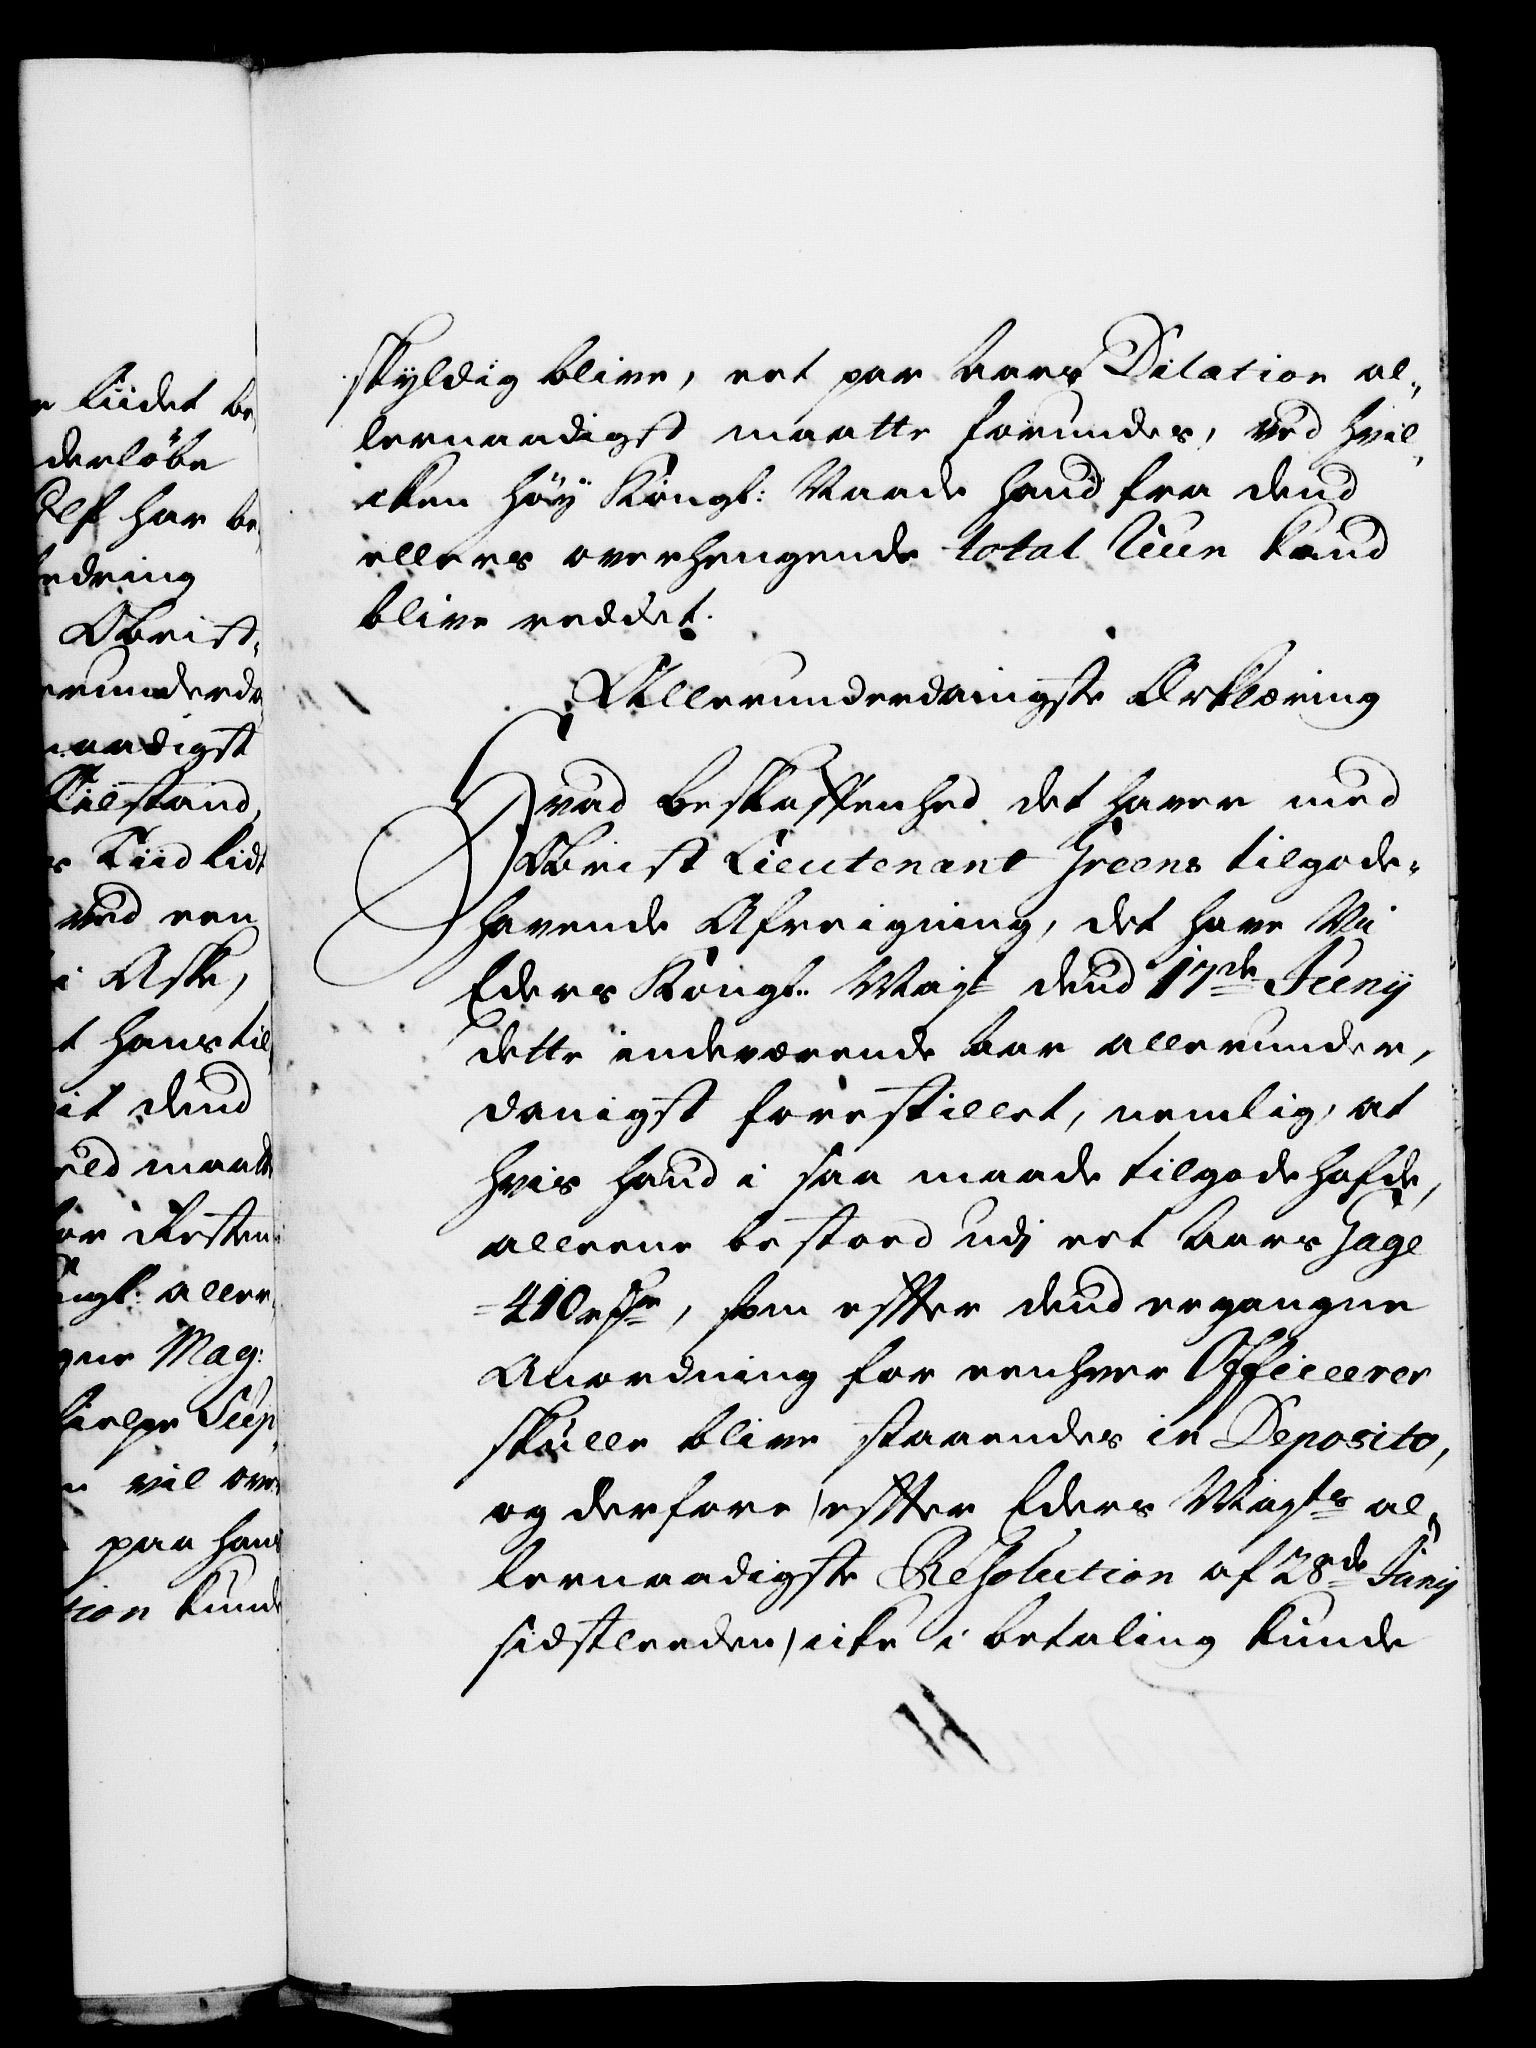 e tiidet be,
derløbe
self har be,
edring
Obrist,
erunderda
naadigst
Tilstand,
s Tiid lidt
ved een
i Aske,
t hans til,
it dend
eld maatte
for Resten
ngl: aller,
gne Mag:
hielpe Sup,
vil over,
paa hans
tion kunde
skyldig blive, eet par Aars Dilation al,
lernaadigst maatte forundes, ved hvil,
cken høy Kongl: Naade hand fra dend
ellers overhengende total Ruin kand
blive reddet.
Allerunderdanigste Erklæring
Hvad beskaffenhed det haver med
Obrist Lieutenant Greens tilgode,
havende Afreigning, det have Vi
Eders Kongl: Mayt dend 17de Junij
dette indeværende Aar allerunder,
danigst forestillet, nemlig, at
hvis hand i saa maade tilgode hafde,
alleene bestoed udj eet Aars Gage
=410 rdr, som effter dend ergangne
Anordning for eenhver Officerer
skulle blive staaendes in Deposito,
og derfore, effter Eders Mayts al,
lernaadigste Resolution af 28de Junij
sidstleeden, icke i betaling kunde